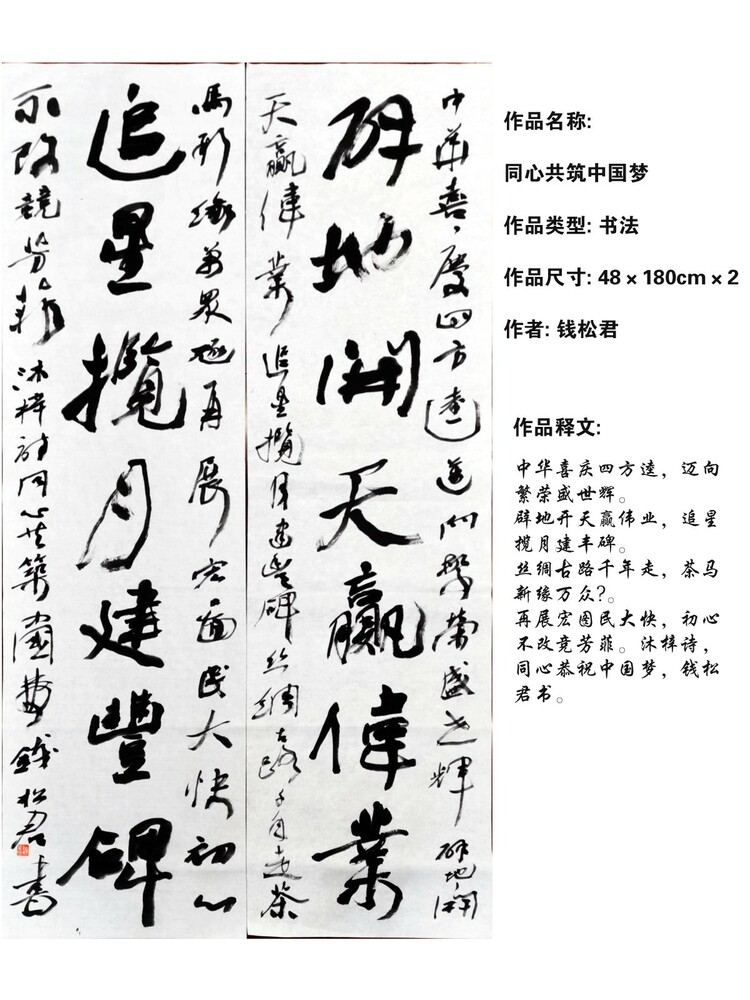 中华喜慶四方逵邁向繁榮盛世輝辟地開
辟地開天赢偉業
天赢偉業追星攬月建豐碑丝綢古路千年走茶
馬新缘萬众 再展宏图民大快初心
追星攬月建豐碑
不改競芳菲沐梓詩同心共築中國夢钱松君书
作品名称:
同心共筑中国梦
作品类型: 书法
作品尺寸: 48 × 180cm × 2
作者: 钱松君
作品释文:
中华喜庆四方逵，迈向
繁荣盛世辉。
辟地开天赢伟业，追星
揽月建丰碑。
丝绸古路千年走，茶马
新缘万众?。
再展宏图民大快，初心
不改竞芳菲。沐梓诗，
同心恭祝中国梦，钱松
君书。